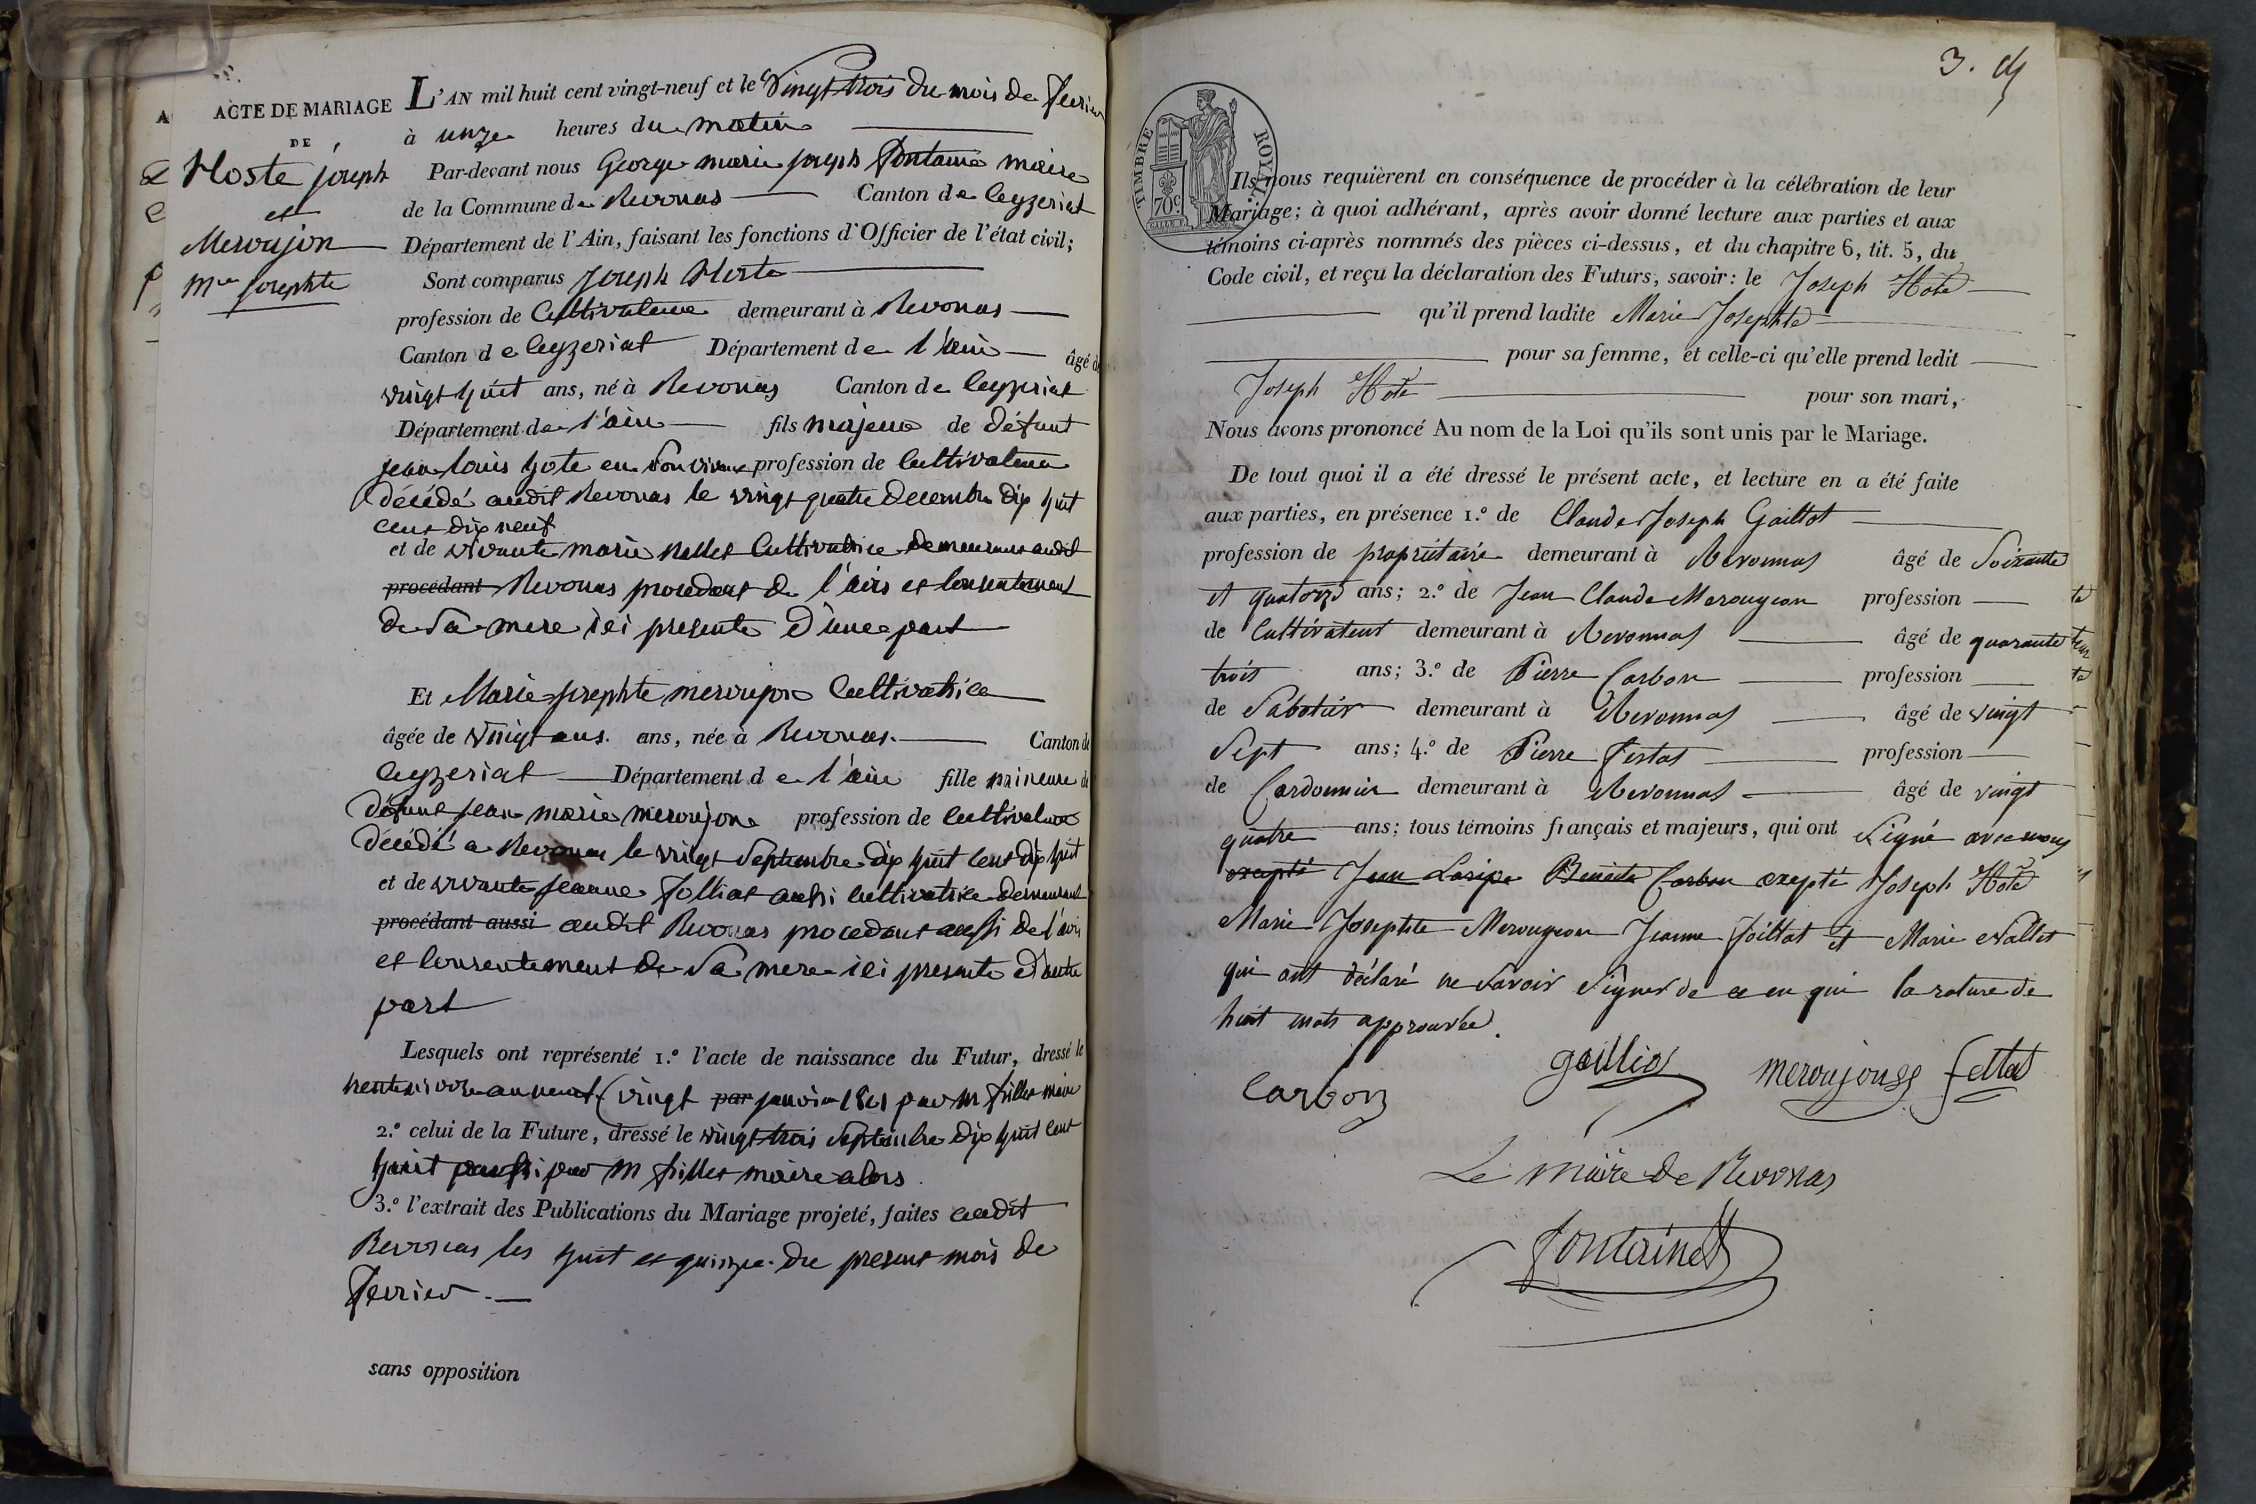 ACTE DE MARIAGE
DE
Hoste joseph
et
Meroujon
Mie josephte
L'AN mil huit cent vingt-neuf et le vingt trois du mois de fevrier
à unze heures du matin
Par-devant nous George marie joseph fontaine maire
de la Commune de Revonas Canton de Ceyzeriat
Département de l'Ain, faisant les fonctions d'Officier de l'état civil;
Sont comparus Joseph Hoste
profession de Cultivateur demeurant à Revonas
Canton de Ceyzeriat Département de l'ain âgé de
vingt huit ans, né à Revonas Canton de Ceyzeriat
Département de l'ain fils majeur de défunt
jean louis hote en son vivant profession de Cultivateur
décédé audit Revonas le vingt quatre decembre dix huit
cent dix neuf
et de vivante marie nallet Cultivatrice demeurant audit
procédant Revonas procedant de l'avis et Consentement
de sa mere ici presente d'une part
Et Marie josephte meroujon Cultivatrice
âgée de vingt ans. ans, née à Revonas. Canton de
Ceyzeriat Département de l'ain fille mineure de
défunt jean marie meroujon profession de Cultivateur
décédé a Revonas le vingt Septembre dix huit Cent dix huit
et de vivante jeanne folliat aussi Cultivatrice demeurant
procédant aussi audit Revonas procedant aussi de l'avis
et Consentement de sa mere ici presente d'autre
part
Lesquels ont représenté 1.º l'acte de naissance du Futur, dressé le
trente nivose an neuf (vingt par janvier 1801 par Mr frillet maire
2.º celui de la Future, dressé le vingt trois Septembre dix huit Cent
huit aussi par M frillet maire alors
3.º l'extrait des Publications du Mariage projeté, faites audit
Revonas les huit et quinze du present mois de
fevrier.
sans opposition
3.
TIMBRE ROYAL
70c
Ils nous requièrent en conséquence de procéder à la célébration de leur
Mariage; à quoi adhérant, après avoir donné lecture aux parties et aux
témoins ci-après nommés des pièces ci-dessus, et du chapitre 6, tit. 5, du
Code civil, et reçu la déclaration des Futurs, savoir: le Joseph Hote
qu'il prend ladite Marie Josephte
pour sa femme, et celle-ci qu'elle prend ledit
Joseph Hote pour son mari,
Nous avons prononcé Au nom de la Loi qu'ils sont unis par le Mariage.
De tout quoi il a été dressé le présent acte, et lecture en a été faite
aux parties, en présence 1.º de Claude Joseph Gaillot
profession de propriétaire demeurant à Revonnas âgé de Soixante
et quatorze ans; 2.º de Jean Claude Merougeon profession
de Cultivateur demeurant à Revonnas âgé de quarante
trois ans; 3.º de Pierre Carbon profession
de Sabotier demeurant à Revonnas âgé de vingt
Sept ans; 4.º de Pierre profession
de Cordonnier demeurant à Revonnas âgé de vingt
quatre ans; tous témoins français et majeurs, qui ont Signé avec nous
excepté Jean Benoite Carbon excepté Joseph Hote
Marie Josephte Merougeon Jeanne foillat et Marie Nallet
qui ont déclaré ne savoir signer de ce enquis la rature de
huit mots approuvée.
Carbon
gaillio
meroujon
fettat
Le maire de Revonas
fontaine